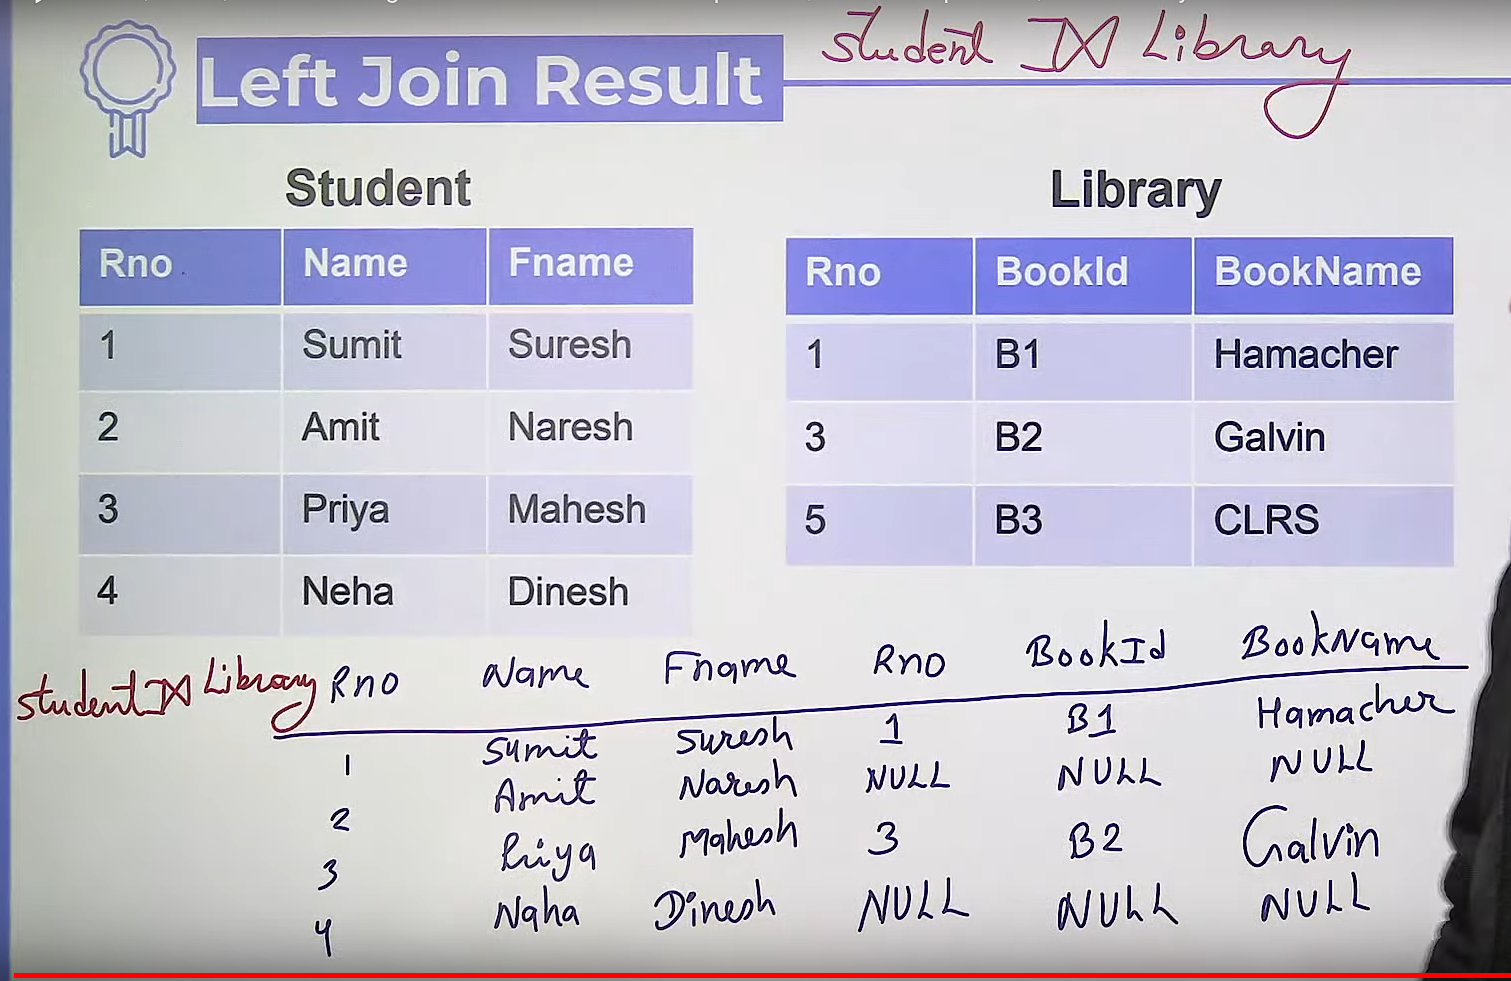 Student ⟕ Library
Left Join Result
Student
Rno Name Fname
1 Sumit Suresh
2 Amit Naresh
3 Priya Mahesh
4 Neha Dinesh
Library
Rno BookId BookName
1 B1 Hamacher
3 B2 Galvin
5 B3 CLRS
Student ⟕ Library
Rno Name Fname Rno BookId BookName
1 Sumit Suresh 1 B1 Hamacher
2 Amit Naresh NULL NULL NULL
3 Priya Mahesh 3 B2 Galvin
4 Naha Dinesh NULL NULL NULL